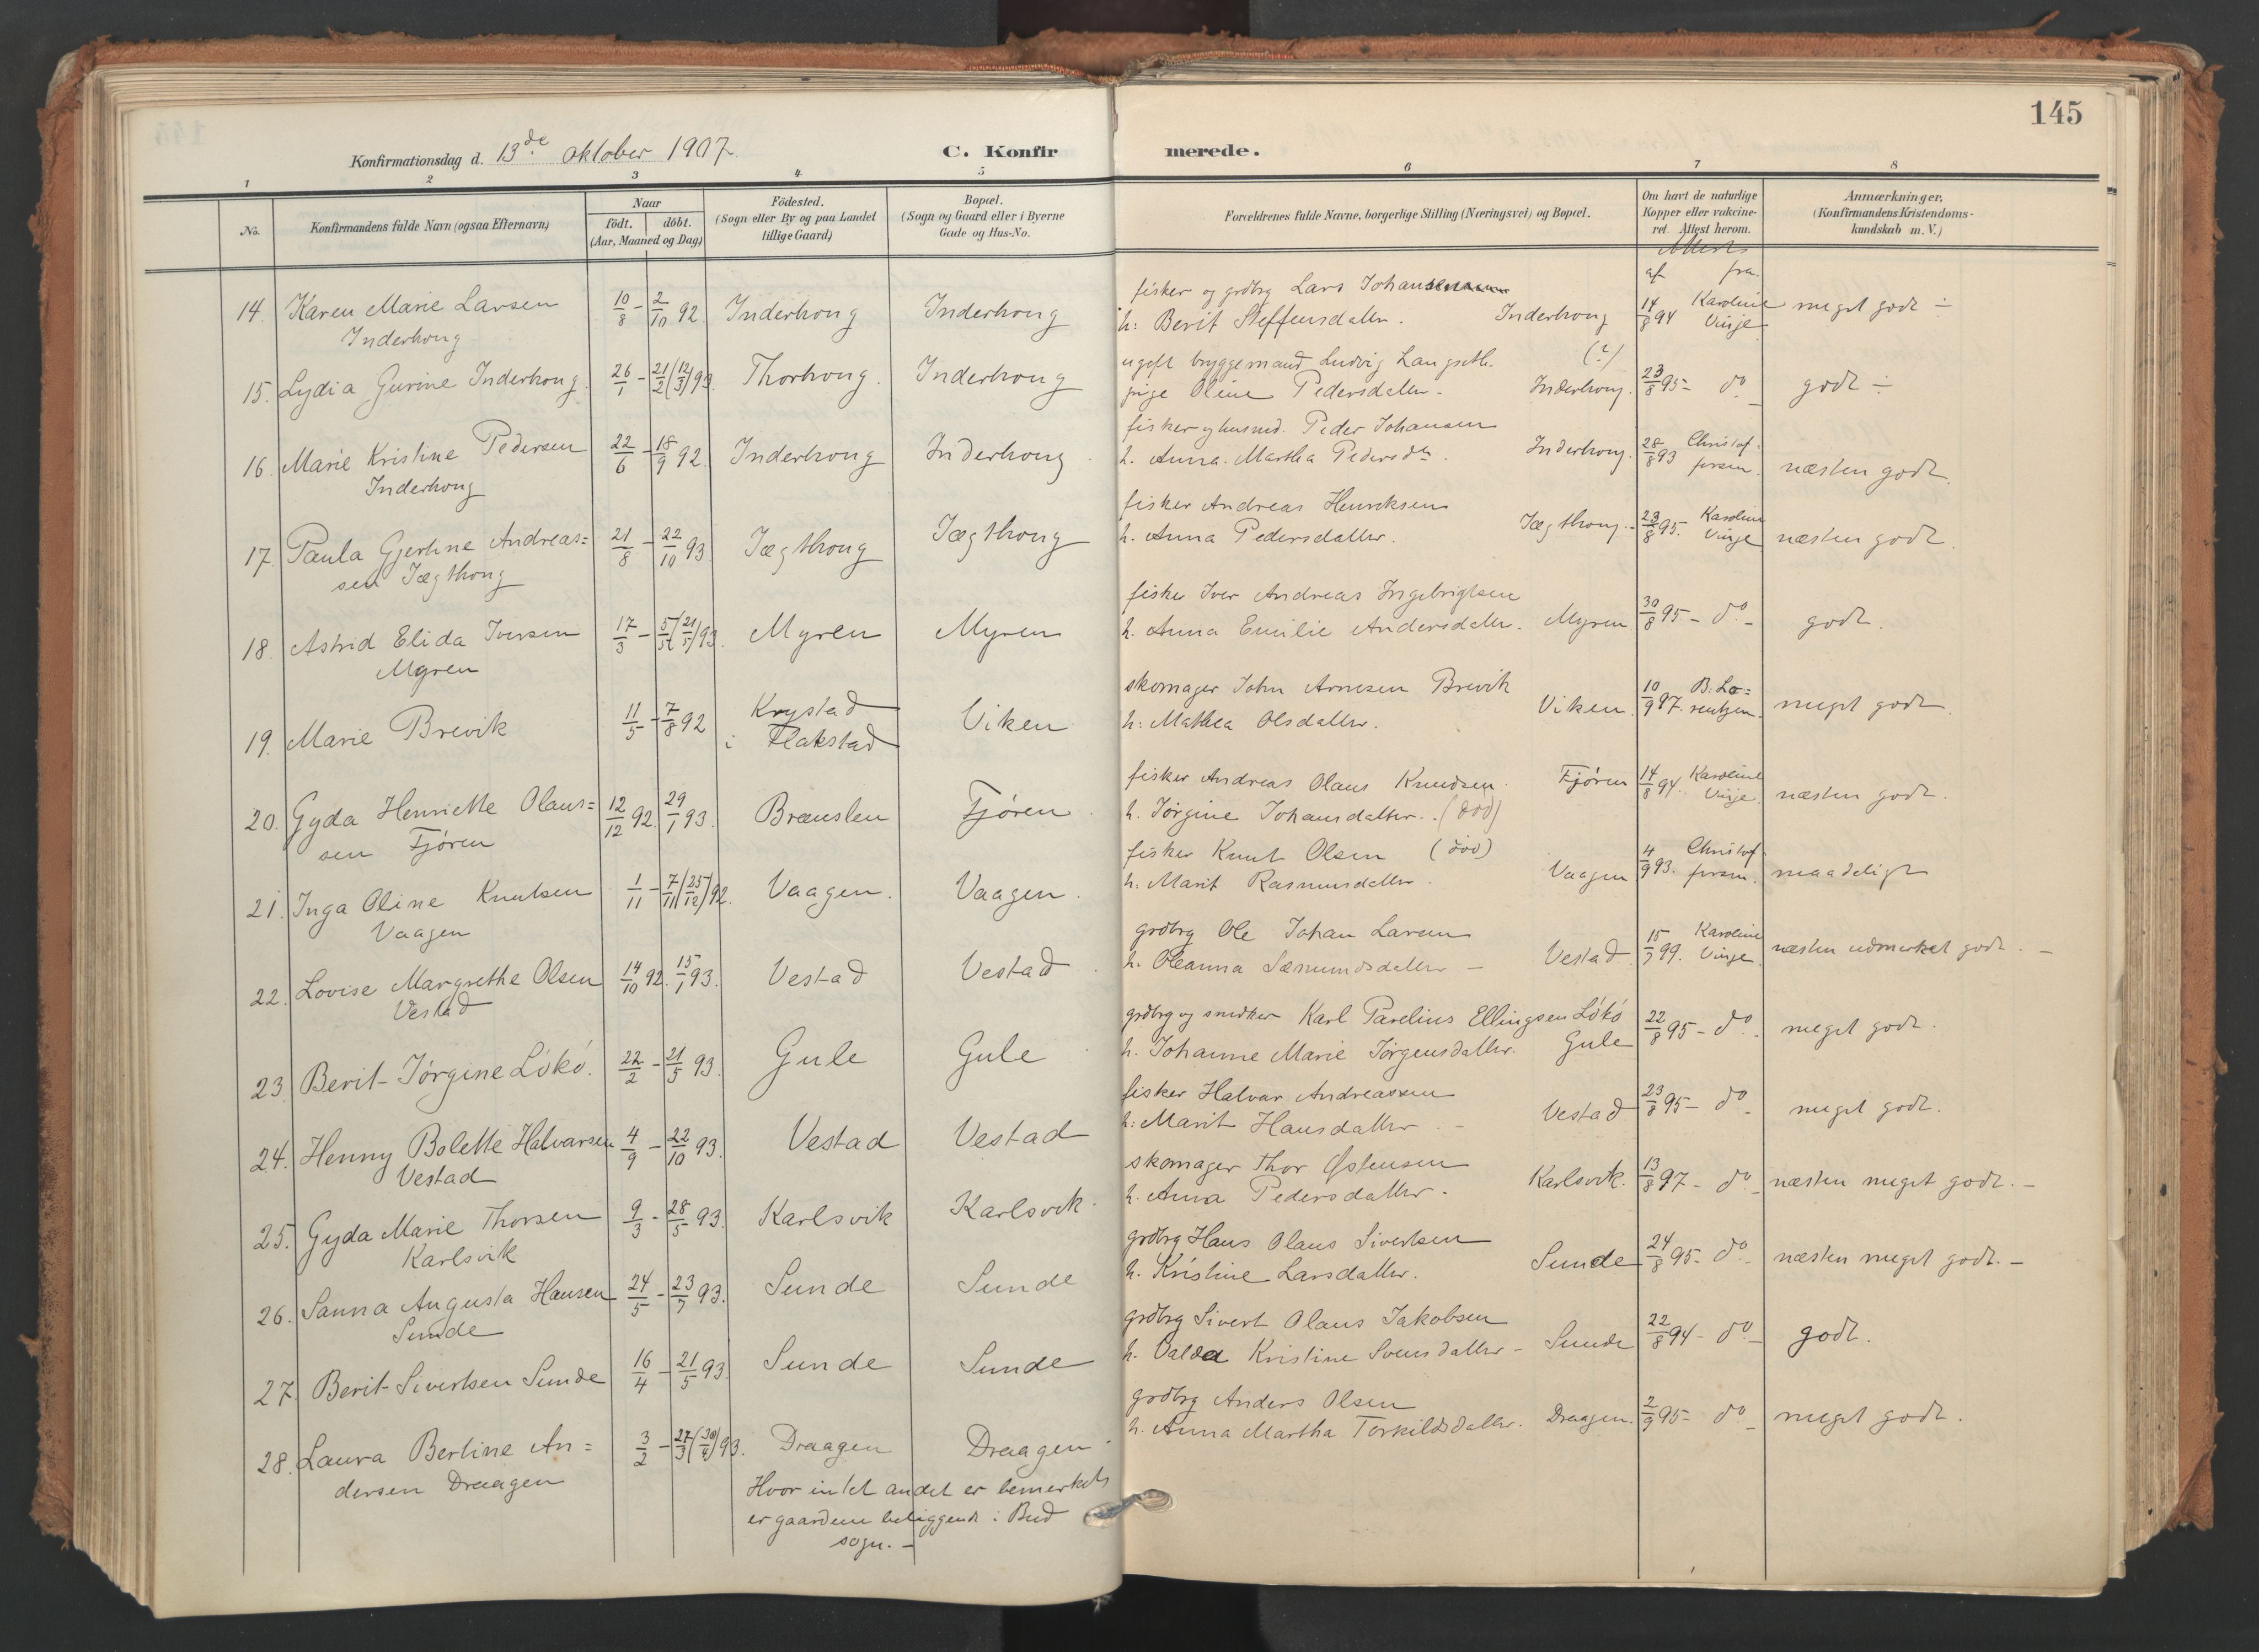 145
Konfirmationsdag d. 13de Oktober 1907.
C. Konfirmerede.
1 2 3 4 5 6 7 8
No.
Konfirmandens fulde Navn (ogsaa Efternavn)
Naar
födt. döbt.
(Aar, Maaned og Dag)
Födested.
(Sogn eller By og paa Landet
tillige Gaard)
Bopæl.
(Sogn og Gaard eller i Byerne
Gade og Hus-No.
Forældrenes fulde Navne, borgerlige Stilling (Næringsvei) og Bopæl.
Om havt de naturlige
Kopper eller vakcine-
ret. Attest herom.
Anmærkninger,
(Konfirmandens Kristendoms-
kundskab m. V.)
Attest
af fra
14. Karen Marie Larsen
Inderhoug
10/8 - 2/10 92. Inderhoug Inderhoug
fisker og grdbrg Lars Johansen
h: Berit Steffensdatter. Inderhoug
14/8 94 Karoline
Vinje
meget godt ÷
15. Lydia Gurine Inderhoug.
26/1 - 21/2 (12/3) 93. Thorhoug. Inderhoug
ugift bryggemand Ludvig Langseth. (?)
pige Oline Pedersdatter. Inderhoug.
23/8 95 - do - godt ÷
16. Marie Kristine Pedersen
Inderhoug
22/6 - 18/9 92. Inderhoug Inderhoug
fisker og husmd. Peder Johansen
h. Anna Martha Pedersdtr. Inderhoug.
28/8 93 Christof-
fersen.
næsten godt.
17. Paula Gjertine Andreas=
sen Jægthoug
21/8 - 22/10 93. Jægthoug Jægthoug
fisker Andreas Henriksen
h. Anna Pedersdatter. Jægthoug.
23/8 95. Karoline
Vinje
næsten godt.
18. Astrid Elida Iversen
Myren
17/3 - 5/5 (21/5) 93. Myren Myren
fisker Iver Andreas Ingebrigtsen
h. Anna Emilie Andersdatter. Myren
30/8 95 - do - godt.
19. Marie Brevik
11/5 - 7/8 92 Krystad
i Flakstad
Viken
skomager John Arnesen Brevik
h: Mathea Olsdatter. Viken.
10/9 97. B. Lo=
rentzen.
meget godt
20. Gyda Henriette Olaus=
sen Fjøren
12/12 92. 29/1 93. Brænslen Fjøren
fisker Andreas Olaus Knudsen. Fjøren
h. Jørgine Johansdatter. (død)
14/8 94. Karoline
Vinje
næsten godt.
21. Inga Oline Knutsen
Vaagen
1/11 - 7/11 (25/12) 92. Vaagen. Vaagen.
fisker Knut Olsen (død)
h: Marit Rasmusdatter. Vaagen
4/9 93. Christof-
fersen.
maadeligt
22. Lovise Margrethe Olsen
Vestad
14/10 92. 15/1 93. Vestad Vestad
grdbrg Ole Johan Larsen
h. Oleanna Sæmundsdatter - Vestad.
15/7 99. Karoline
Vinje.
næsten udmerket godt. -
23. Berit Jörgine Lökö.
22/2 - 21/5 93. Gule Gule
grdbrg og snedker Karl Parelius Ellingsen Lökö
h. Johanne Marie Jörgensdatter. Gule
22/8 95 - do - meget godt.
24. Henny Bolette Halvarsen
Vestad
4/9 - 22/10 93. Vestad Vestad
fisker Halvar Andreassen
h: Marit Hansdatter. - Vestad
23/8 95 - do - meget godt.
25. Gyda Marie Thorsen
Karlsvik
9/3 - 28/5 93. Karlsvik Karlsvik.
skomager Thor Østensen
h. Anna Pedersdatter. Karlsvik.
13/8 97 - do - næsten meget godt. -
26. Sanna Augusta Hansen
Sunde
24/5 - 23/7 93. Sunde Sunde
grdbrg Hans Olaus Sivertsen
h. Kristine Larsdatter. Sunde
24/8 95 - do - næsten meget godt. -
27. Berit Sivertsen Sunde
16/4 - 21/5 93. Sunde Sunde
grdbrg Sivert Olaus Jakobsen
h. Valda Kristine Svensdatter - Sunde
22/8 94 - do - godt.
28. Laura Bertine An=
dersen Draagen
3/2 - 27/3 (30/4) 93. Draagen Draagen
grdbrg Anders Olsen
h. Anna Martha Torkildsdatter. Draagen.
2/9 95 - do - meget godt.
Hvor intet andet er bemerket
er gaardene beliggende i Bud
sogn. -